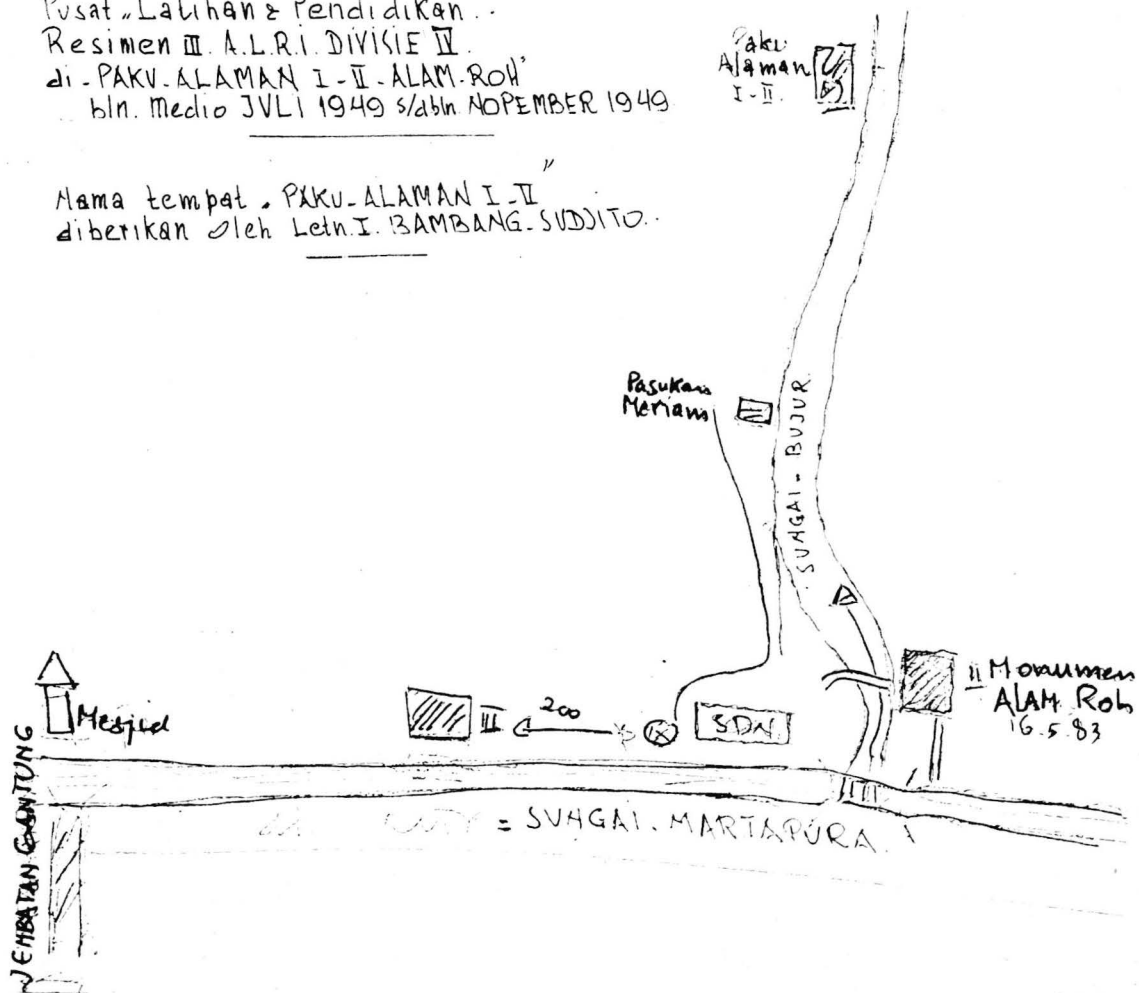 Pusat „Latihan & Pendidikan..
Resimen III. A.L.R.I. DIVISIE IV.
di - PAKU-ALAMAN I-II-ALAM-ROH"
bln. Medio JULI 1949 s/d bln. NOPEMBER 1949
Nama tempat „ PAKU-ALAMAN I-II"
diberikan oleh Letn.I. BAMBANG-SUDJITO..
Paku
Alaman
I-II.
Pasukan
Meriam
SUNGAI - BUJUR
Mesjid
III
200
SDN
II Monumen
ALAM Roh
16.5.83
JEMBATAN GANTUNG
= SUNGAI. MARTAPURA.